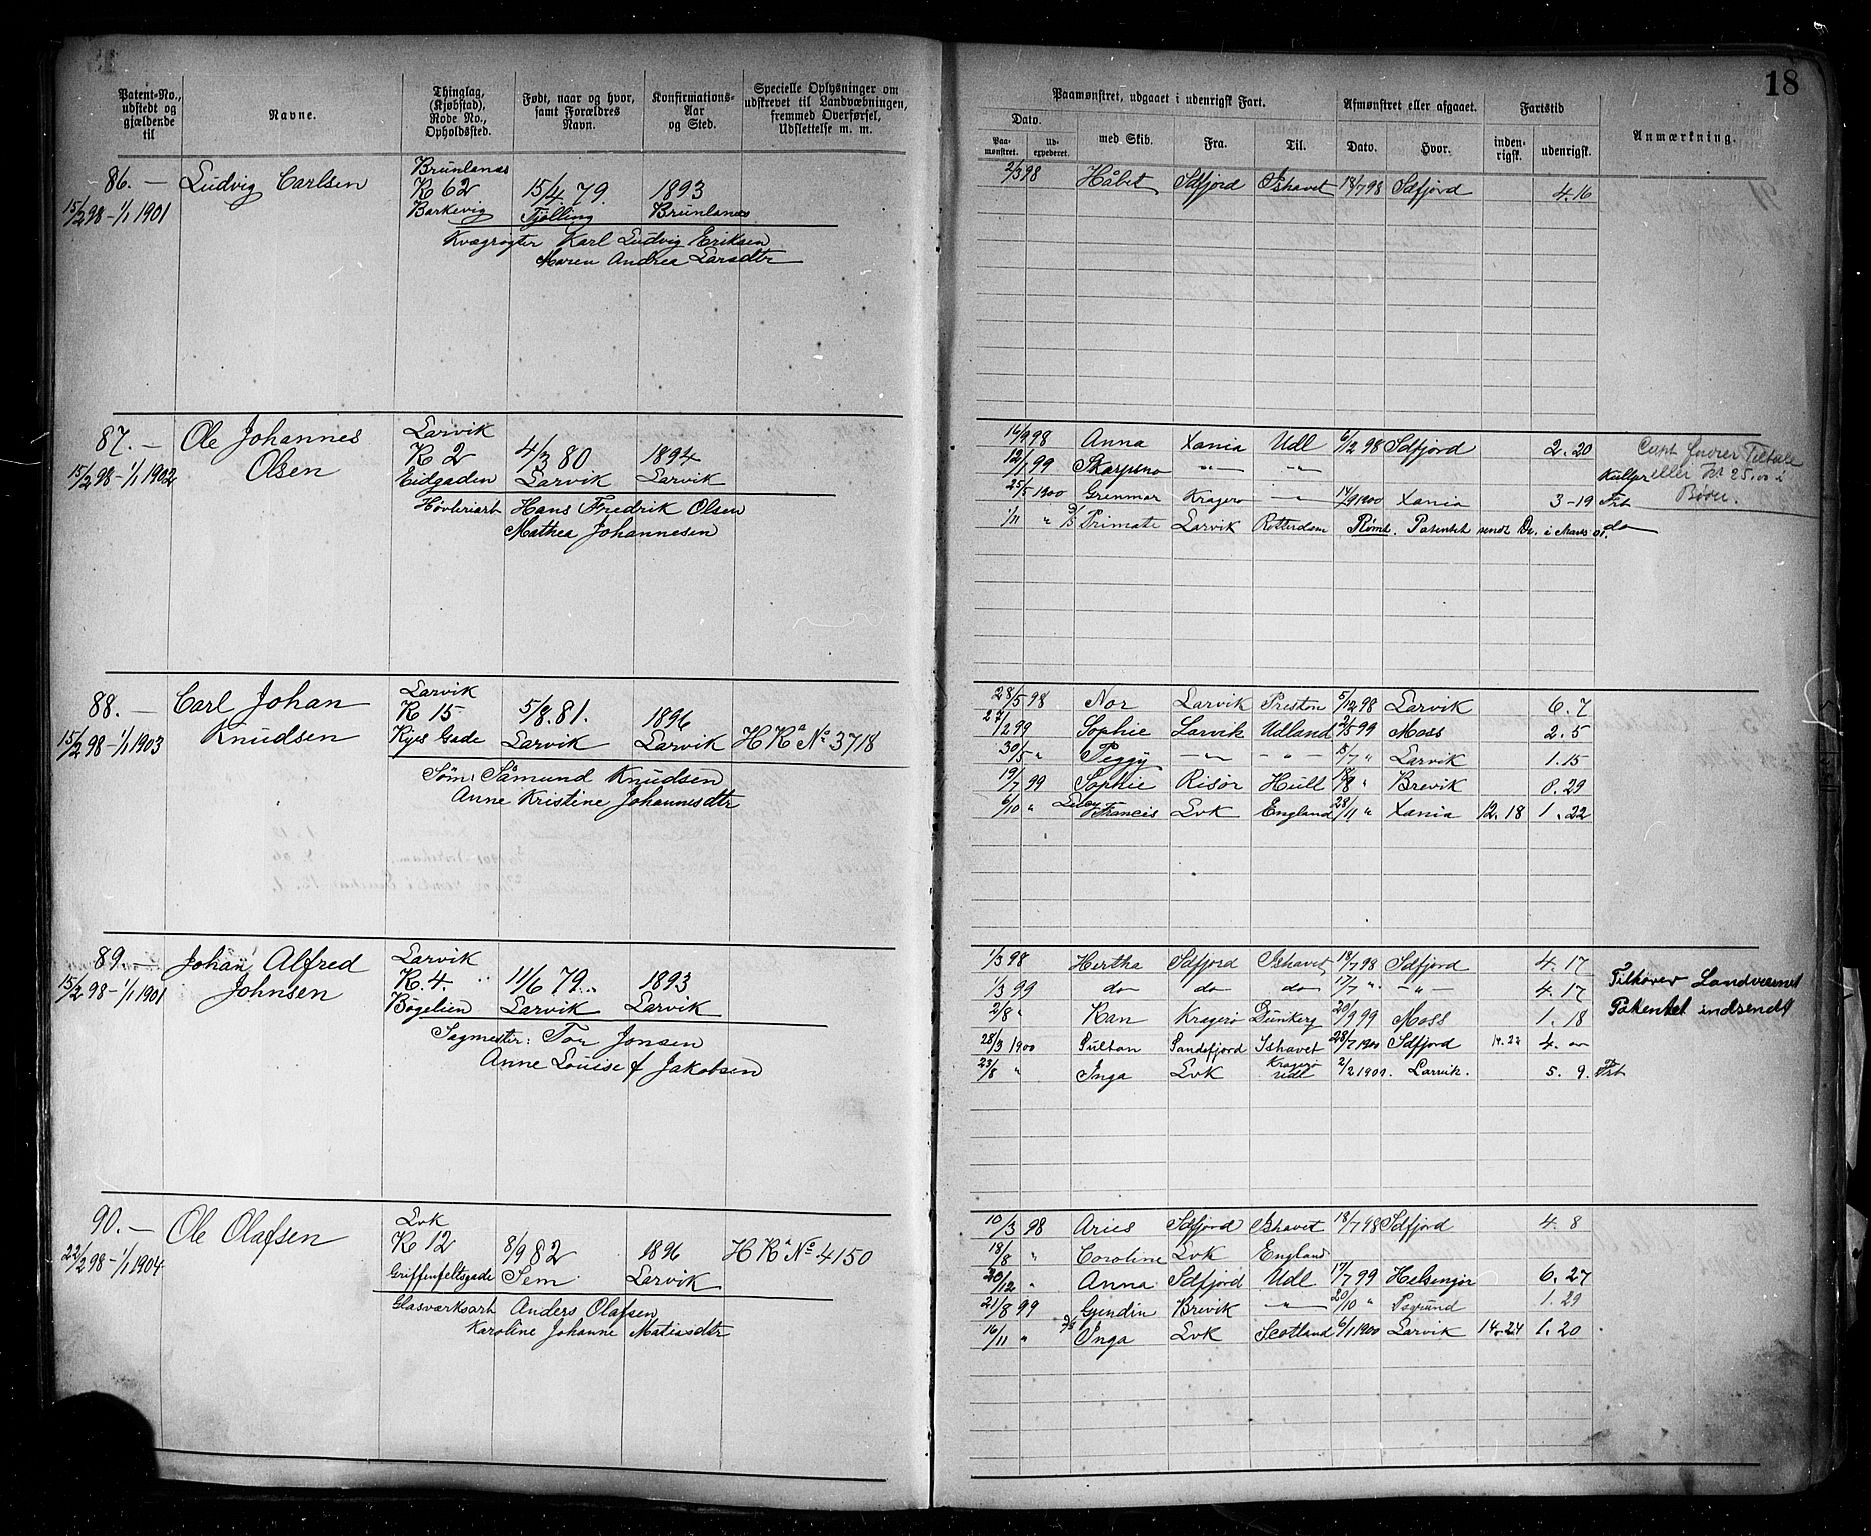 18
Patent-No., udstedt og gjældende til
Navne.
Thinglag, (Kjøbstad), Rode No., Opholdssted.
Født, naar og hvor, samt Forældres Navn.
Konfirmations-Aar og Sted.
Specielle Oplysninger om udskrevet til Landvæbningen, fremmed Overførsel, Udslettelse m. m.
Paamønstret, udgaaet i udenrigsk Fart.
Afmønstret eller afgaaet.
Fartstid
Anmærkning.
Dato.
Paa-mønstret.
Ud-expederet.
med Skib.
Fra.
Til.
Dato.
Hvor.
inden-rigsk.
udenrigsk.
86. — Ludvig Carlsen
Brunlanæs
R 62 15/4. 79. 1893
15/2 98 - 1/1 1901 Barkevig Tjølling Brunlanæs
Kvægrøgter Karl Ludvig Eriksen
Maren Andrea Larsdtr
2/3 98 Håbet Sdfjord Ishavet 18/7 98 Sdfjord 4.16
87. — Ole Johannes Larvik
Olsen R 2 4/3 80 1894
15/2 98 - 1/1 1902 Eidgaden Larvik Larvik
Høvleriarb Hans Fredrik Olsen
Mathea Johannesen
16/9 98 Anna Xania Udl 6/12 98 Sdfjord 2. 20
12/1 99 Skarpsno " "
25/5 1900 Grenmar Kragerø " 14/9 1900 Xania 3-19 Frb
1/11 " Primate Larvik Rotterdam Rømt. Patentet sendt Dr. i Marts 01. do
88. — Carl Johan Larvik
Knudsen R 15 5/8. 81. 1896
15/2 98 - 1/1 1903 Kijes Gade Larvik Larvik H Ra No 3718
Søm: Såmund Knudsen
Anne Kristine Johannesdtr
28/5 98 Nor Larvik Preston 5/12 98 Larvik 6. 7
27/2 99 Sophie Larvik Udland 2/5 99 Moss 2. 5
30/5 " Peggy — " — — " — 5/7 " Larvik 1. 15
19/7 99 Sophie Risør Hull 18/9 " Brevik 0. 29
6/10 " Francis Lvk England 28/11 " Xania 12. 18 1. 22
89. — Johan Alfred Larvik
Johnsen R. 4. 11/6 79. 1893
15/2 98 - 1/1 1901 Bøgelien Larvik Larvik
Sagmester: Tor Jonsen
Anne Louise f Jakobsen
1/3 98 Hertha Sdfjord Ishavet 18/7 98 Sdfjord 4. 17
1/3 99 do do do 17/7 " — " — 4. 17
2/8 " Ran Kragerø Dunkerq 20/9 99 Moss 1. 18
28/3 1900 Sultan Sandefjord Ishavet 28/7 1900 Sdfjord 14. 22 4. 00
23/8 " Inga Lvk Kragerø Udl 2/2 1901. Larvik. 5. 9. Frb
Tilhører Landværnet
Patentet indsendt
90. — Ole Olafsen Lvk
R 12 8/9 82 1896 H Ra No 4150
22/2 98 - 1/1 1904. Griffenfeltsgade Sem Larvik
Glasværksarb Anders Olafsen
Karoline Johanne Matiasdtr
10/3 98 Aries Sdfjord Ishavet 18/7 98 Sdfjord 4. 8
18/8 " Caroline Lvk England
20/12 " Anna Sdfjord Udl 17/7 99 Helsengør 6. 27
21/8 99 Gjendin Brevik — " — 20/10 " Psgrund 1. 29
16/11 " Inga Lvk Scotland 6/1 1900 Larvik 14. 24 1. 20